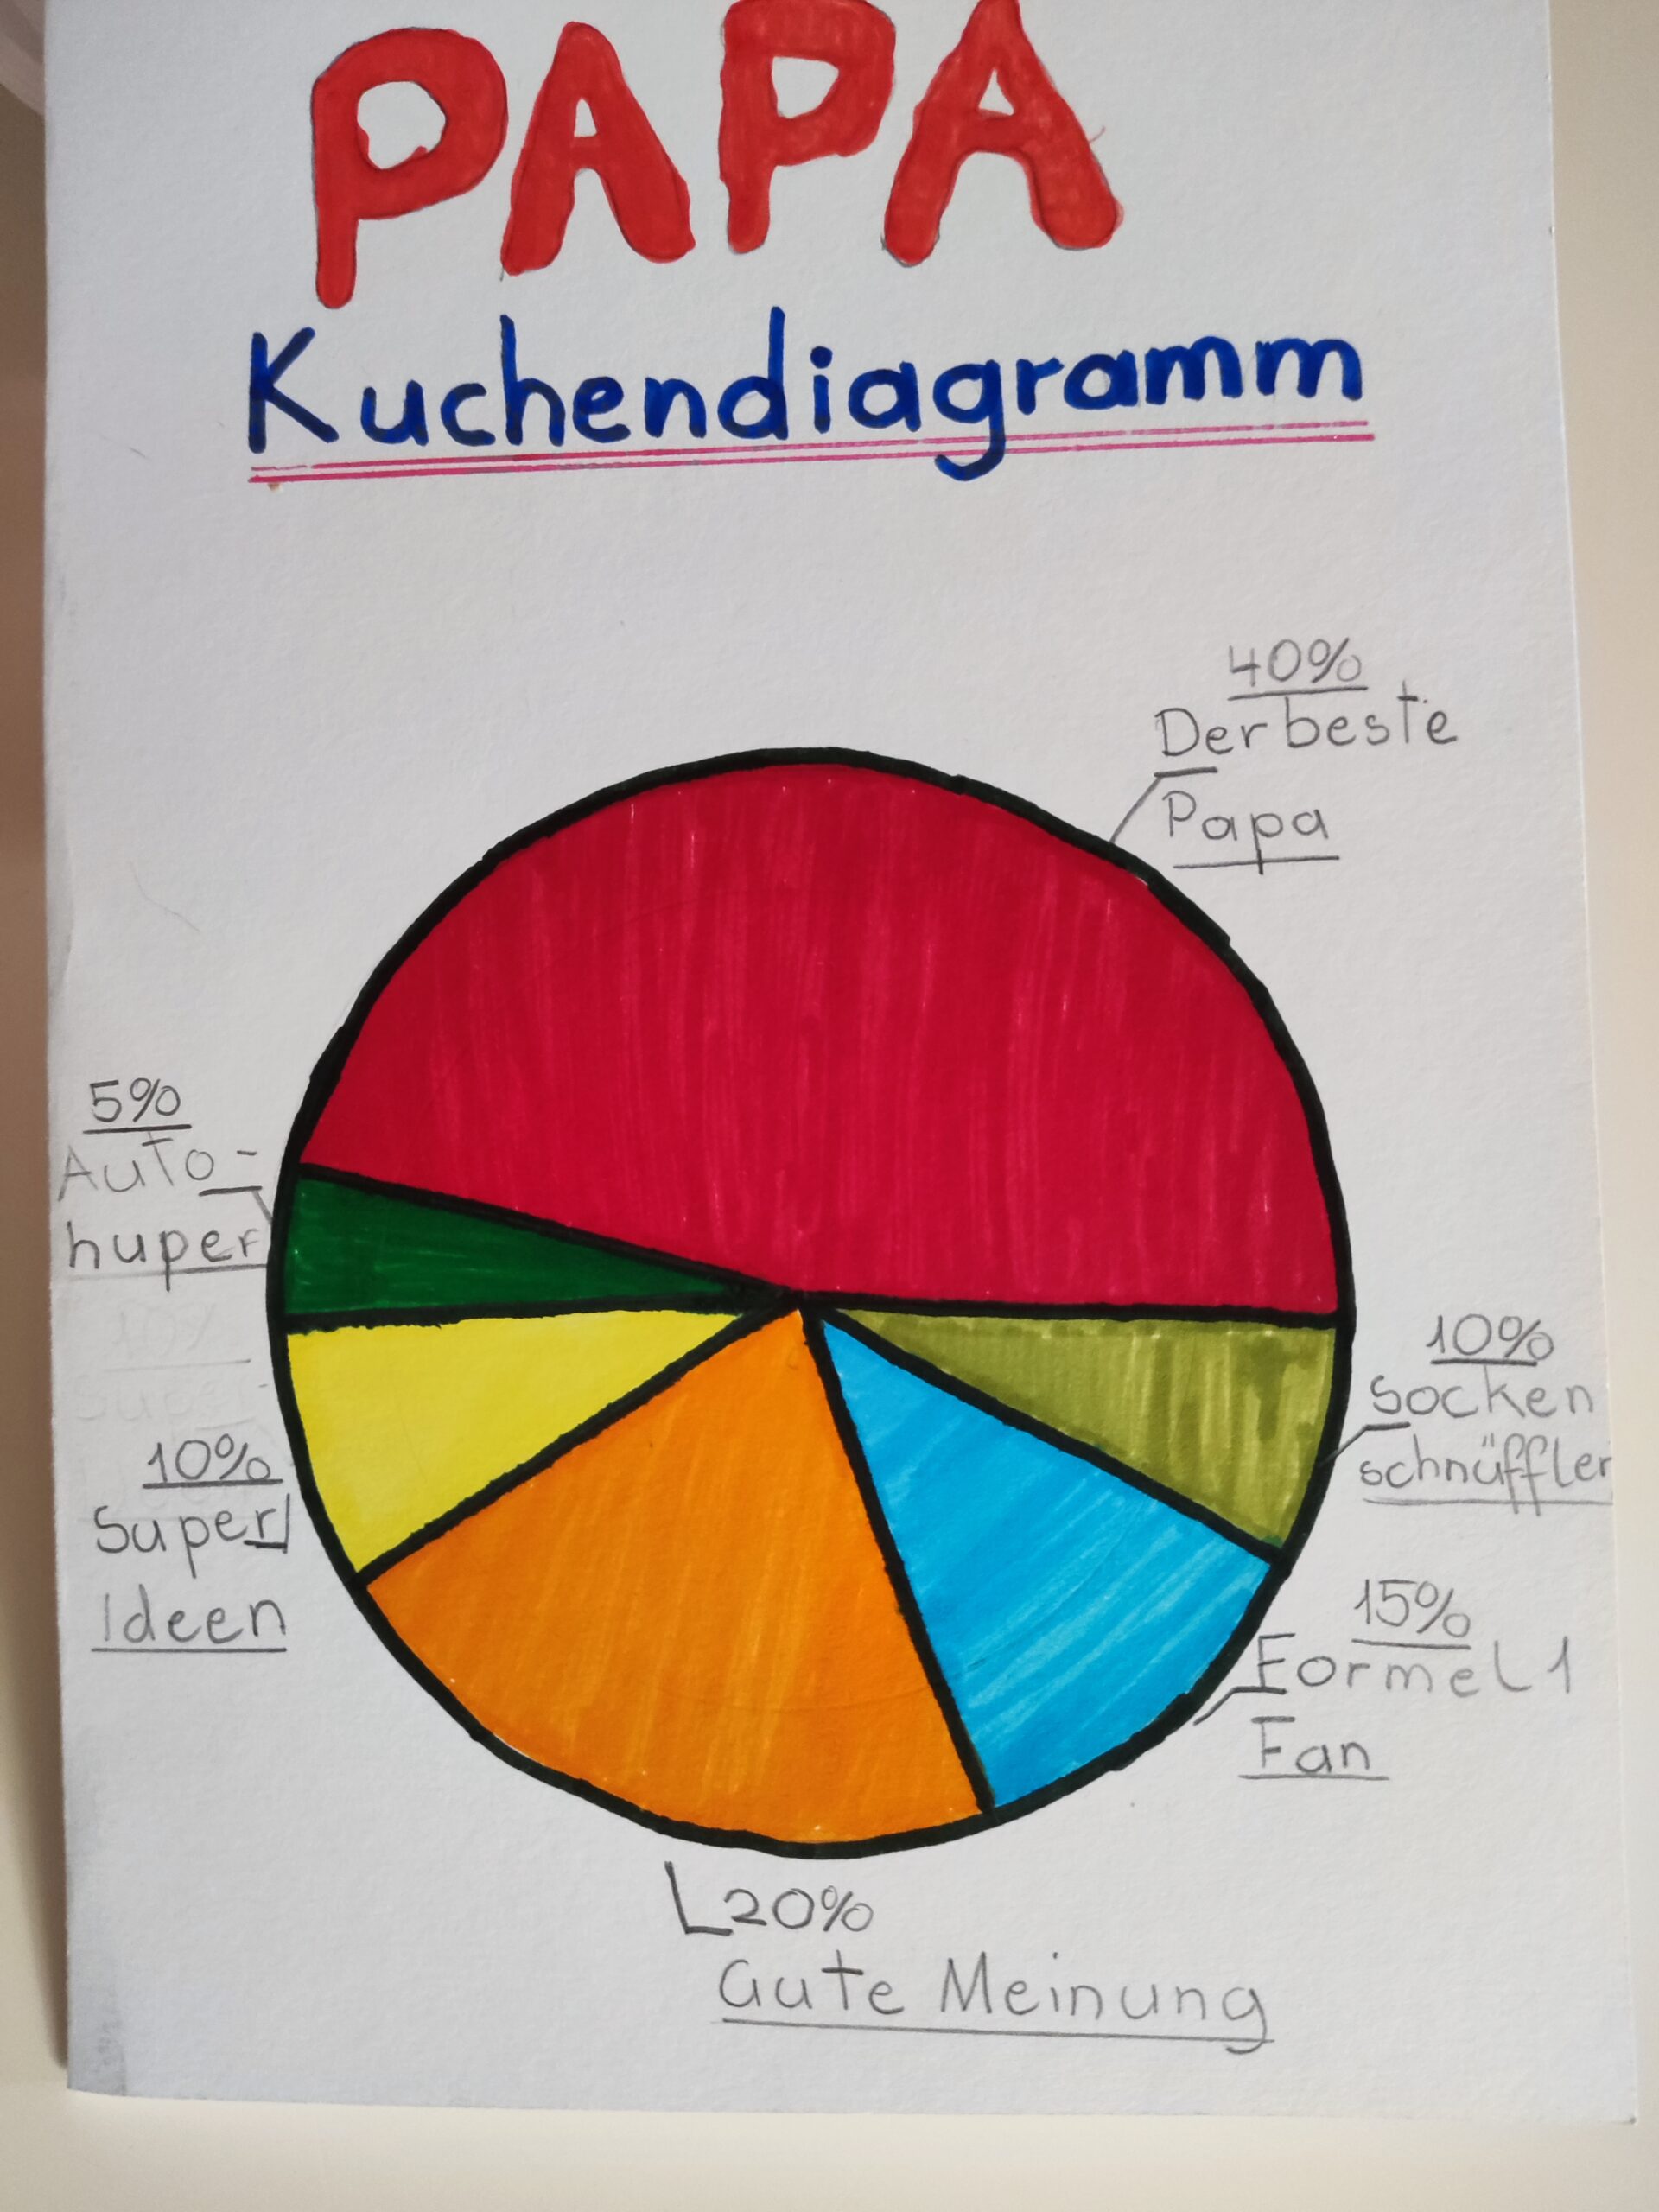 PAPA
Kuchendiagramm
40%
Der beste
Papa
5%
Auto-
huper
10%
Socken
schnüffler
10%
Super
Ideen
15%
Formel 1
Fan
20%
Gute Meinung